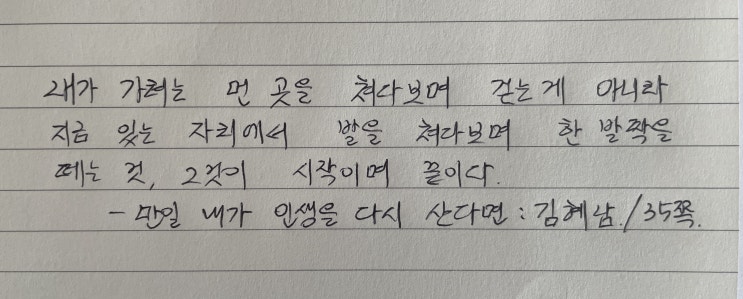 내가 가려는 먼 곳을 쳐다보며 걷는게 아니라
지금 있는 자리에서 발을 쳐다보며 한 발짝을
떼는 것, 그것이 시작이며 끝이다.
- 만일 내가 인생을 다시 산다면 : 김혜남. / 35쪽.